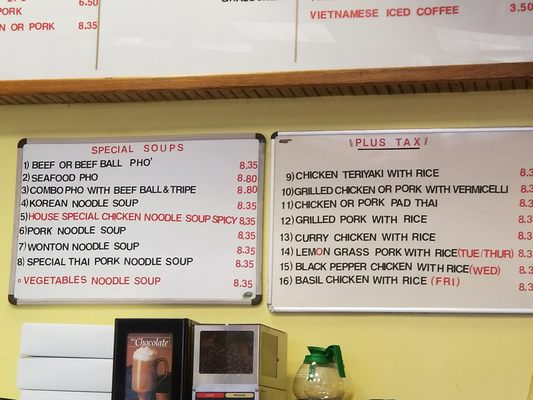 6.50
PORK
N OR PORK 8.35
VIETNAMESE ICED COFFEE 3.50
SPECIAL SOUPS
1) BEEF OR BEEF BALL PHO' 8.35
2) SEAFOOD PHO 8.80
3) COMBO PHO WITH BEEF BALL & TRIPE 8.80
4) KOREAN NOODLE SOUP 8.35
5) HOUSE SPECIAL CHICKEN NOODLE SOUP SPICY 8.35
6) PORK NOODLE SOUP 8.35
7) WONTON NOODLE SOUP 8.35
8) SPECIAL THAI PORK NOODLE SOUP 8.35
VEGETABLES NOODLE SOUP 8.35
PLUS TAX
9) CHICKEN TERIYAKI WITH RICE 8.3
10) GRILLED CHICKEN OR PORK WITH VERMICELLI 8.3
11) CHICKEN OR PORK PAD THAI 8.3
12) GRILLED PORK WITH RICE 8.3
13) CURRY CHICKEN WITH RICE 8.3
14) LEMON GRASS PORK WITH RICE (TUE/THUR) 8.3
15) BLACK PEPPER CHICKEN WITH RICE (WED) 8.3
16) BASIL CHICKEN WITH RICE (FRI) 8.3
Chocolate